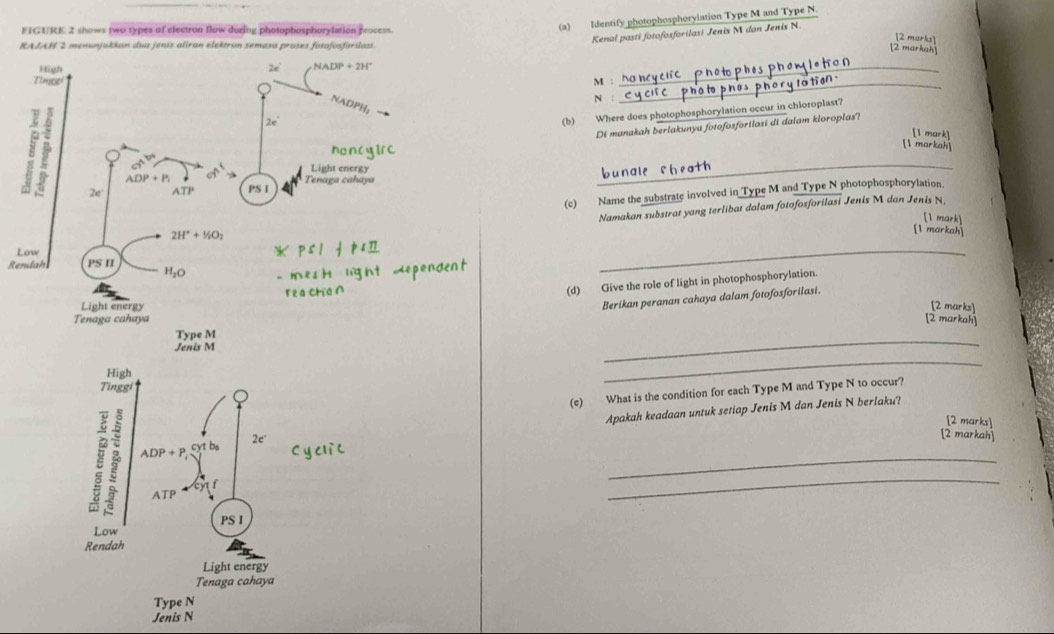 FIGURE 2 shows two types of electron flow during photophosphorylation process.
RAJAH 2 menunjukkan dua jenis aliran elektron semasa proses fotofosforilasi.
High
Tinggi
Electron energy level
Tahap tenaga elektron
Low
Rendah
2e⁻
NADP + 2H⁺
NADPH₂
2e⁻
noncyclic
cyt b₆
ADP + Pᵢ
ATP
cyt f
2e⁻
PS I
Light energy
Tenaga cahaya
2H⁺ + ½O₂
PS II
H₂O
* PSI & PSII
- mesti light dependent
reaction
Light energy
Tenaga cahaya
Type M
Jenis M
High
Tinggi
Electron energy level
Tahap tenaga elektron
Low
Rendah
ADP + Pᵢ
cyt b₆
2e⁻
cyclic
ATP
cyt f
PS I
Light energy
Tenaga cahaya
Type N
Jenis N
(a) Identify photophosphorylation Type M and Type N.
Kenal pasti fotofosforilasi Jenis M dan Jenis N.
[2 marks]
[2 markah]
M : noncyclic photophosphorylation
N : cyclic photophosphorylation.
(b) Where does photophosphorylation occur in chloroplast?
Di manakah berlakunya fotofosforilasi di dalam kloroplas?
[1 mark]
[1 markah]
bundle sheath
(c) Name the substrate involved in Type M and Type N photophosphorylation.
Namakan substrat yang terlibat dalam fotofosforilasi Jenis M dan Jenis N.
[1 mark]
[1 markah]
(d) Give the role of light in photophosphorylation.
Berikan peranan cahaya dalam fotofosforilasi.
[2 marks]
[2 markah]
(e) What is the condition for each Type M and Type N to occur?
Apakah keadaan untuk setiap Jenis M dan Jenis N berlaku?
[2 marks]
[2 markah]